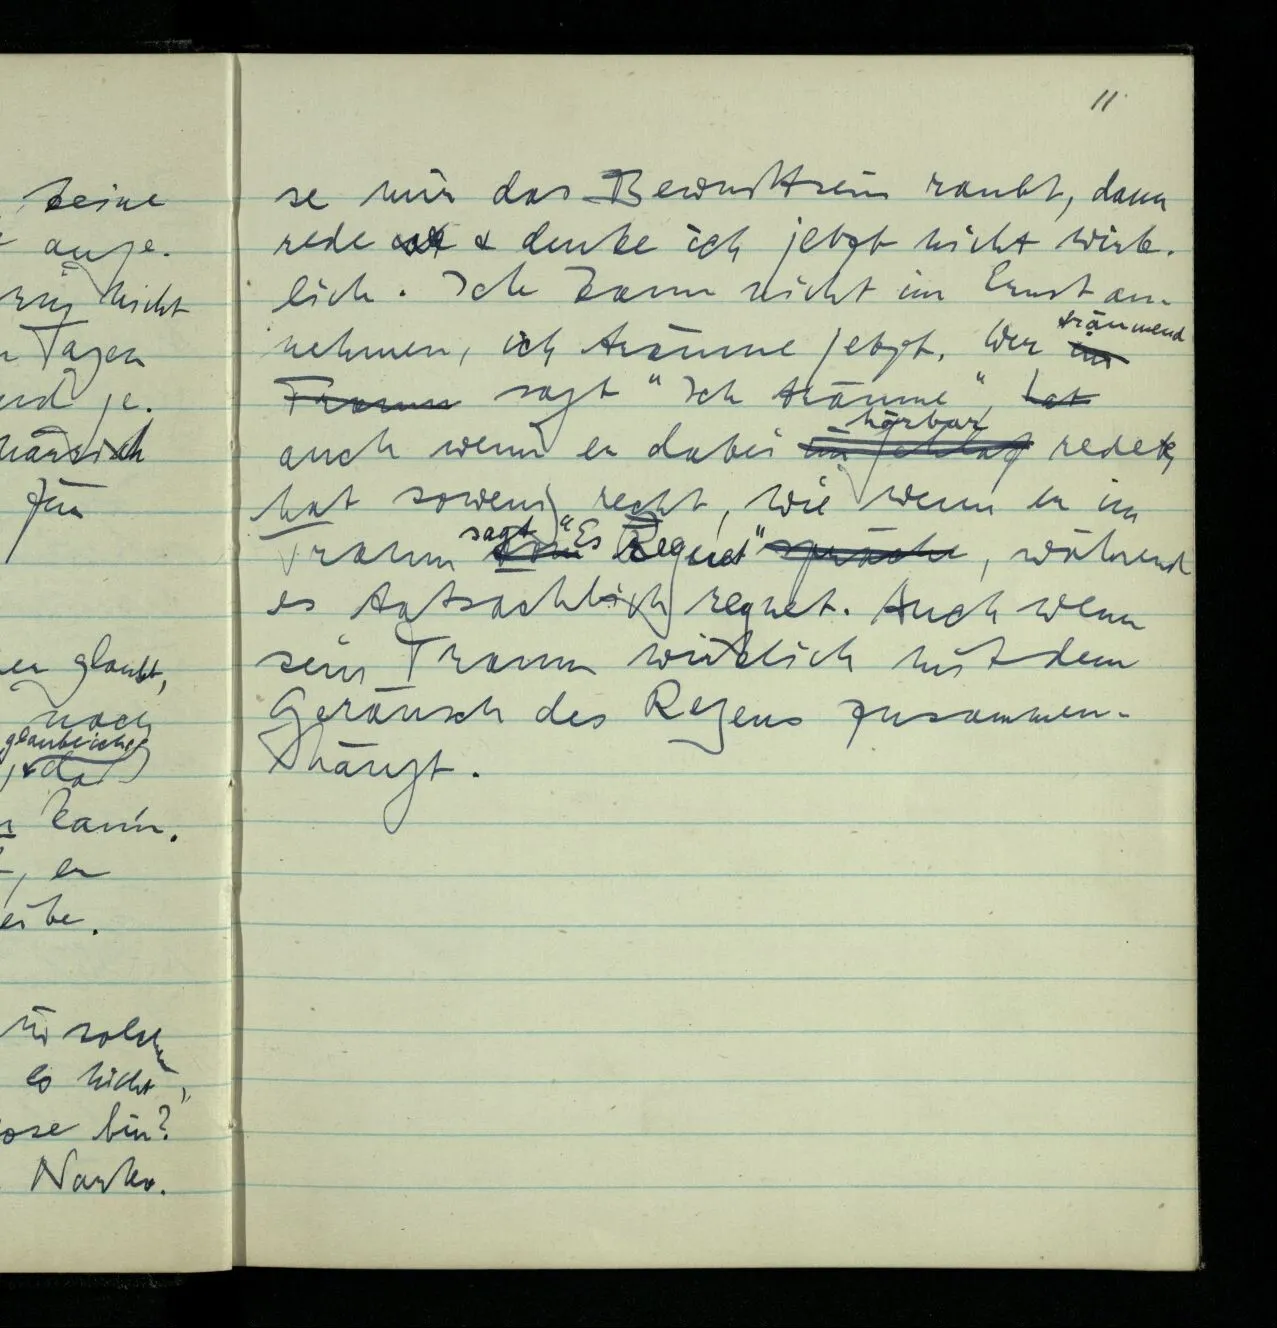 keine
ange-
nicht
Tagen
närrisch
für
glaubt,
noch
glaube ich
daß
kann.
, er
solchen
es nicht,
ose bin?
Narko-
11
se mir das Bewußtsein raubt, dann
rede & denke ich jetzt nicht wirk-
lich. Ich kann nicht im Ernst an-
nehmen, ich träume jetzt. Wer im träumend
Traum sagt "Ich träume", hat
auch wenn er dabei im Schlaf hörbar redet,
hat sowenig recht, wie wenn er im
Traum sagt "Es regnet" spräche, während
es tatsächlich regnet. Auch wenn
sein Traum wirklich mit dem
Geräusch des Regens zusammen-
hängt.